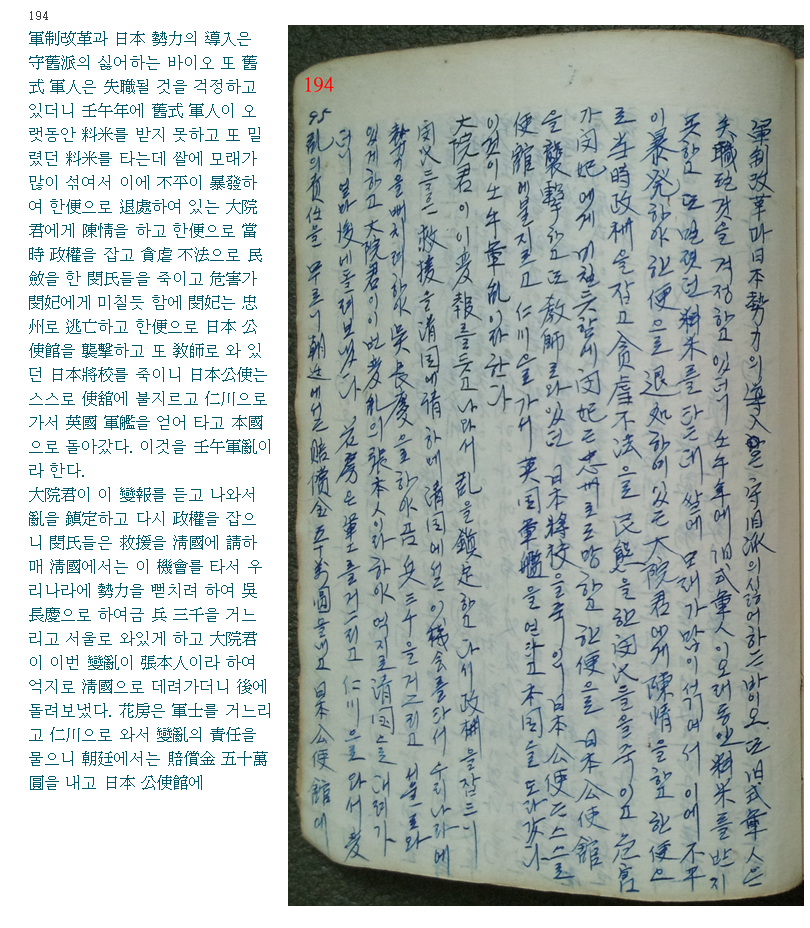 194
軍制改革과 日本 勢力의 導入은
守舊派의 싫어하는 바이오 또 舊
式 軍人은 失職될 것을 걱정하고
있더니 壬午年에 舊式 軍人이 오
랫동안 料米를 받지 못하고 또 밀
렸던 料米를 타는데 쌀에 모래가
많이 섞여서 이에 不平이 暴發하
여 한편으로 退處하여 있는 大院
君에게 陳情을 하고 한편으로 當
時 政權을 잡고 貪虐 不法으로 民
斂을 한 閔民들을 죽이고 危害가
閔妃에게 미칠듯 함에 閔妃는 忠
州로 逃亡하고 한편으로 日本 公
使館을 襲擊하고 또 敎師로 와 있
던 日本將校를 죽이니 日本公使는
스스로 使舘에 불지르고 仁川으로
가서 英國 軍艦을 얻어 타고 本國
으로 돌아갔다. 이것을 壬午軍亂이
라 한다.
大院君이 이 變報를 듣고 나와서
亂을 鎭定하고 다시 政權을 잡으
니 閔民들은 救援을 淸國에 請하
매 淸國에서는 이 機會를 타서 우
리나라에 勢力을 뻗치려 하여 吳
長慶으로 하여금 兵 三千을 거느
리고 서울로 와있게 하고 大院君
이 이번 變亂이 張本人이라 하여
억지로 淸國으로 데려가더니 後에
돌려보냈다. 花房은 軍士를 거느리
고 仁川으로 와서 變亂의 責任을
물으니 朝廷에서는 賠償金 五十萬
圓을 내고 日本 公使館에
194
軍制改革과 日本勢力의 導入은 守旧派의 싫어하는 바이오 또 旧式軍人은
失職될 것을 걱정하고 있더니 壬午年에 旧式軍人이 오래동안 料米를 받지
못하고 또 밀렸던 料米를 타는데 쌀에 모래가 많이 석겨서 이에 不平
이 暴発하야 한便으로 退処하여 있는 大院君에게 陳情을 하고 한便으
로 当時政权을 잡고 貪虐不法으로 民斂을 한 閔氏들을 죽이고 危害
가 閔妃에게 미칠듯 함에 閔妃는 忠州로 도망하고 한便으로 日本公使館
을 襲擊하고 또 敎師로 와있던 日本將校을 죽이니 日本公使는 스스로
使館에 불지르고 仁川으로 가서 英国軍艦을 얻어타고 本国으로 도라갔다
이것이 壬午軍乱이라 한다
大院君이 이 変報를 듯고 나와서 乱을 鎭定하고 다시 政权을 잡으니
閔氏들은 救援을 淸国에 請하매 淸国에서는 이 機会를 타서 우리나라에
勢力을 뻐치려 하야 吳長慶을 하야금 兵 三千을 거느리고 서울로 와
있게 하고 大院君이 이번 変乱의 張本人이라 하야 억지로 淸国으로 데려가
더니 얼마 後에 돌려보냈다 花房은 軍士를 거느리고 仁川으로 와서 変
95
乱의 責任을 무르니 朝廷에서는 賠償金 五十万圓을 내고 日本公使館에